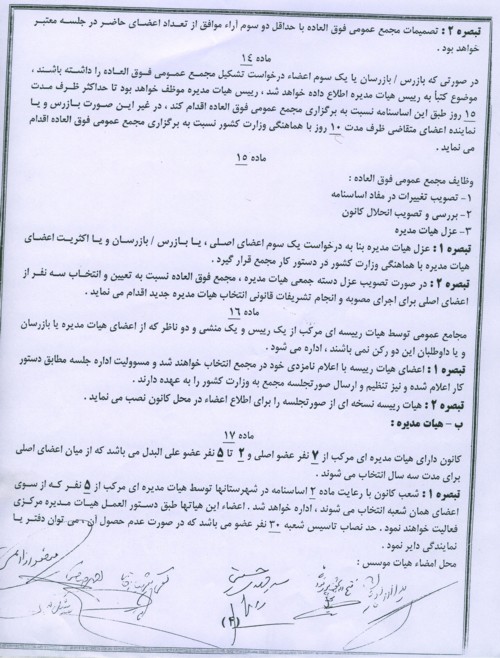 تبصره ۲ : تصمیمات مجمع عمومی فوق العاده با حداقل دو سوم آراء موافق از تعداد اعضای حاضر در جلسه معتبر
خواهد بود .
ماده ۱۴
در صورتی که بازرس / بازرسان یا یک سوم اعضاء درخواست تشکیل مجمع عمومی فوق العاده را داشته باشند ،
موضوع کتباً به رییس هیات مدیره اطلاع داده خواهد شد ، رییس هیات مدیره موظف خواهد بود تا حداکثر ظرف مدت
۱۵ روز طبق این اساسنامه نسبت به برگزاری مجمع عمومی فوق العاده اقدام کند ، در غیر این صورت بازرس و یا
نماینده اعضای متقاضی ظرف مدت ۱۰ روز با هماهنگی وزارت کشور نسبت به برگزاری مجمع عمومی فوق العاده اقدام
می نماید .
ماده ۱۵
وظایف مجمع عمومی فوق العاده :
۱- تصویب تغییرات در مفاد اساسنامه
۲- بررسی و تصویب انحلال کانون
۳- عزل هیات مدیره
تبصره ۱ : عزل هیات مدیره بنا به درخواست یک سوم اعضای اصلی ، یا بازرس / بازرسان و یا اکثریت اعضای
هیات مدیره با هماهنگی وزارت کشور در دستور کار مجمع قرار گیرد .
تبصره ۲ : در صورت تصویب عزل دسته جمعی هیات مدیره ، مجمع فوق العاده نسبت به تعیین و انتخاب سه نفر از
اعضای اصلی برای اجرای مصوبه و انجام تشریفات قانونی انتخاب هیات مدیره جدید اقدام می نماید .
ماده ۱۶
مجامع عمومی توسط هیات رییسه ای مرکب از یک رییس و یک منشی و دو ناظر که از اعضای هیات مدیره یا بازرسان
و یا داوطلبان این دو رکن نمی باشند ، اداره می شود .
تبصره ۱ : اعضای هیات رییسه با اعلام نامزدی خود در مجمع انتخاب خواهند شد و مسوولیت اداره جلسه مطابق دستور
کار اعلام شده و نیز تنظیم و ارسال صورتجلسه مجمع به وزارت کشور را به عهده دارند .
تبصره ۲ : هیات رییسه نسخه ای از صورتجلسه را برای اطلاع اعضاء در محل کانون نصب می نماید .
ب – هیات مدیره :
ماده ۱۷
کانون دارای هیات مدیره ای مرکب از ۷ نفر عضو اصلی و ۲ تا ۵ نفر عضو علی البدل می باشد که از میان اعضای اصلی
برای مدت سه سال انتخاب می شوند .
تبصره ۱ : شعب کانون با رعایت ماده ۲ اساسنامه در شهرستانها توسط هیات مدیره ای مرکب از ۵ نفر که از سوی
اعضای همان شعبه انتخاب می شوند ، اداره خواهد شد . اعضاء این هیاتها طبق دستور العمل هیات مدیره مرکزی
فعالیت خواهند نمود . حد نصاب تاسیس شعبه ۳۰ نفر عضو می باشد که در صورت عدم حصول آن ، می توان دفتر یا
نمایندگی دایر نمود .
محل امضاء هیات موسس :
(۴)